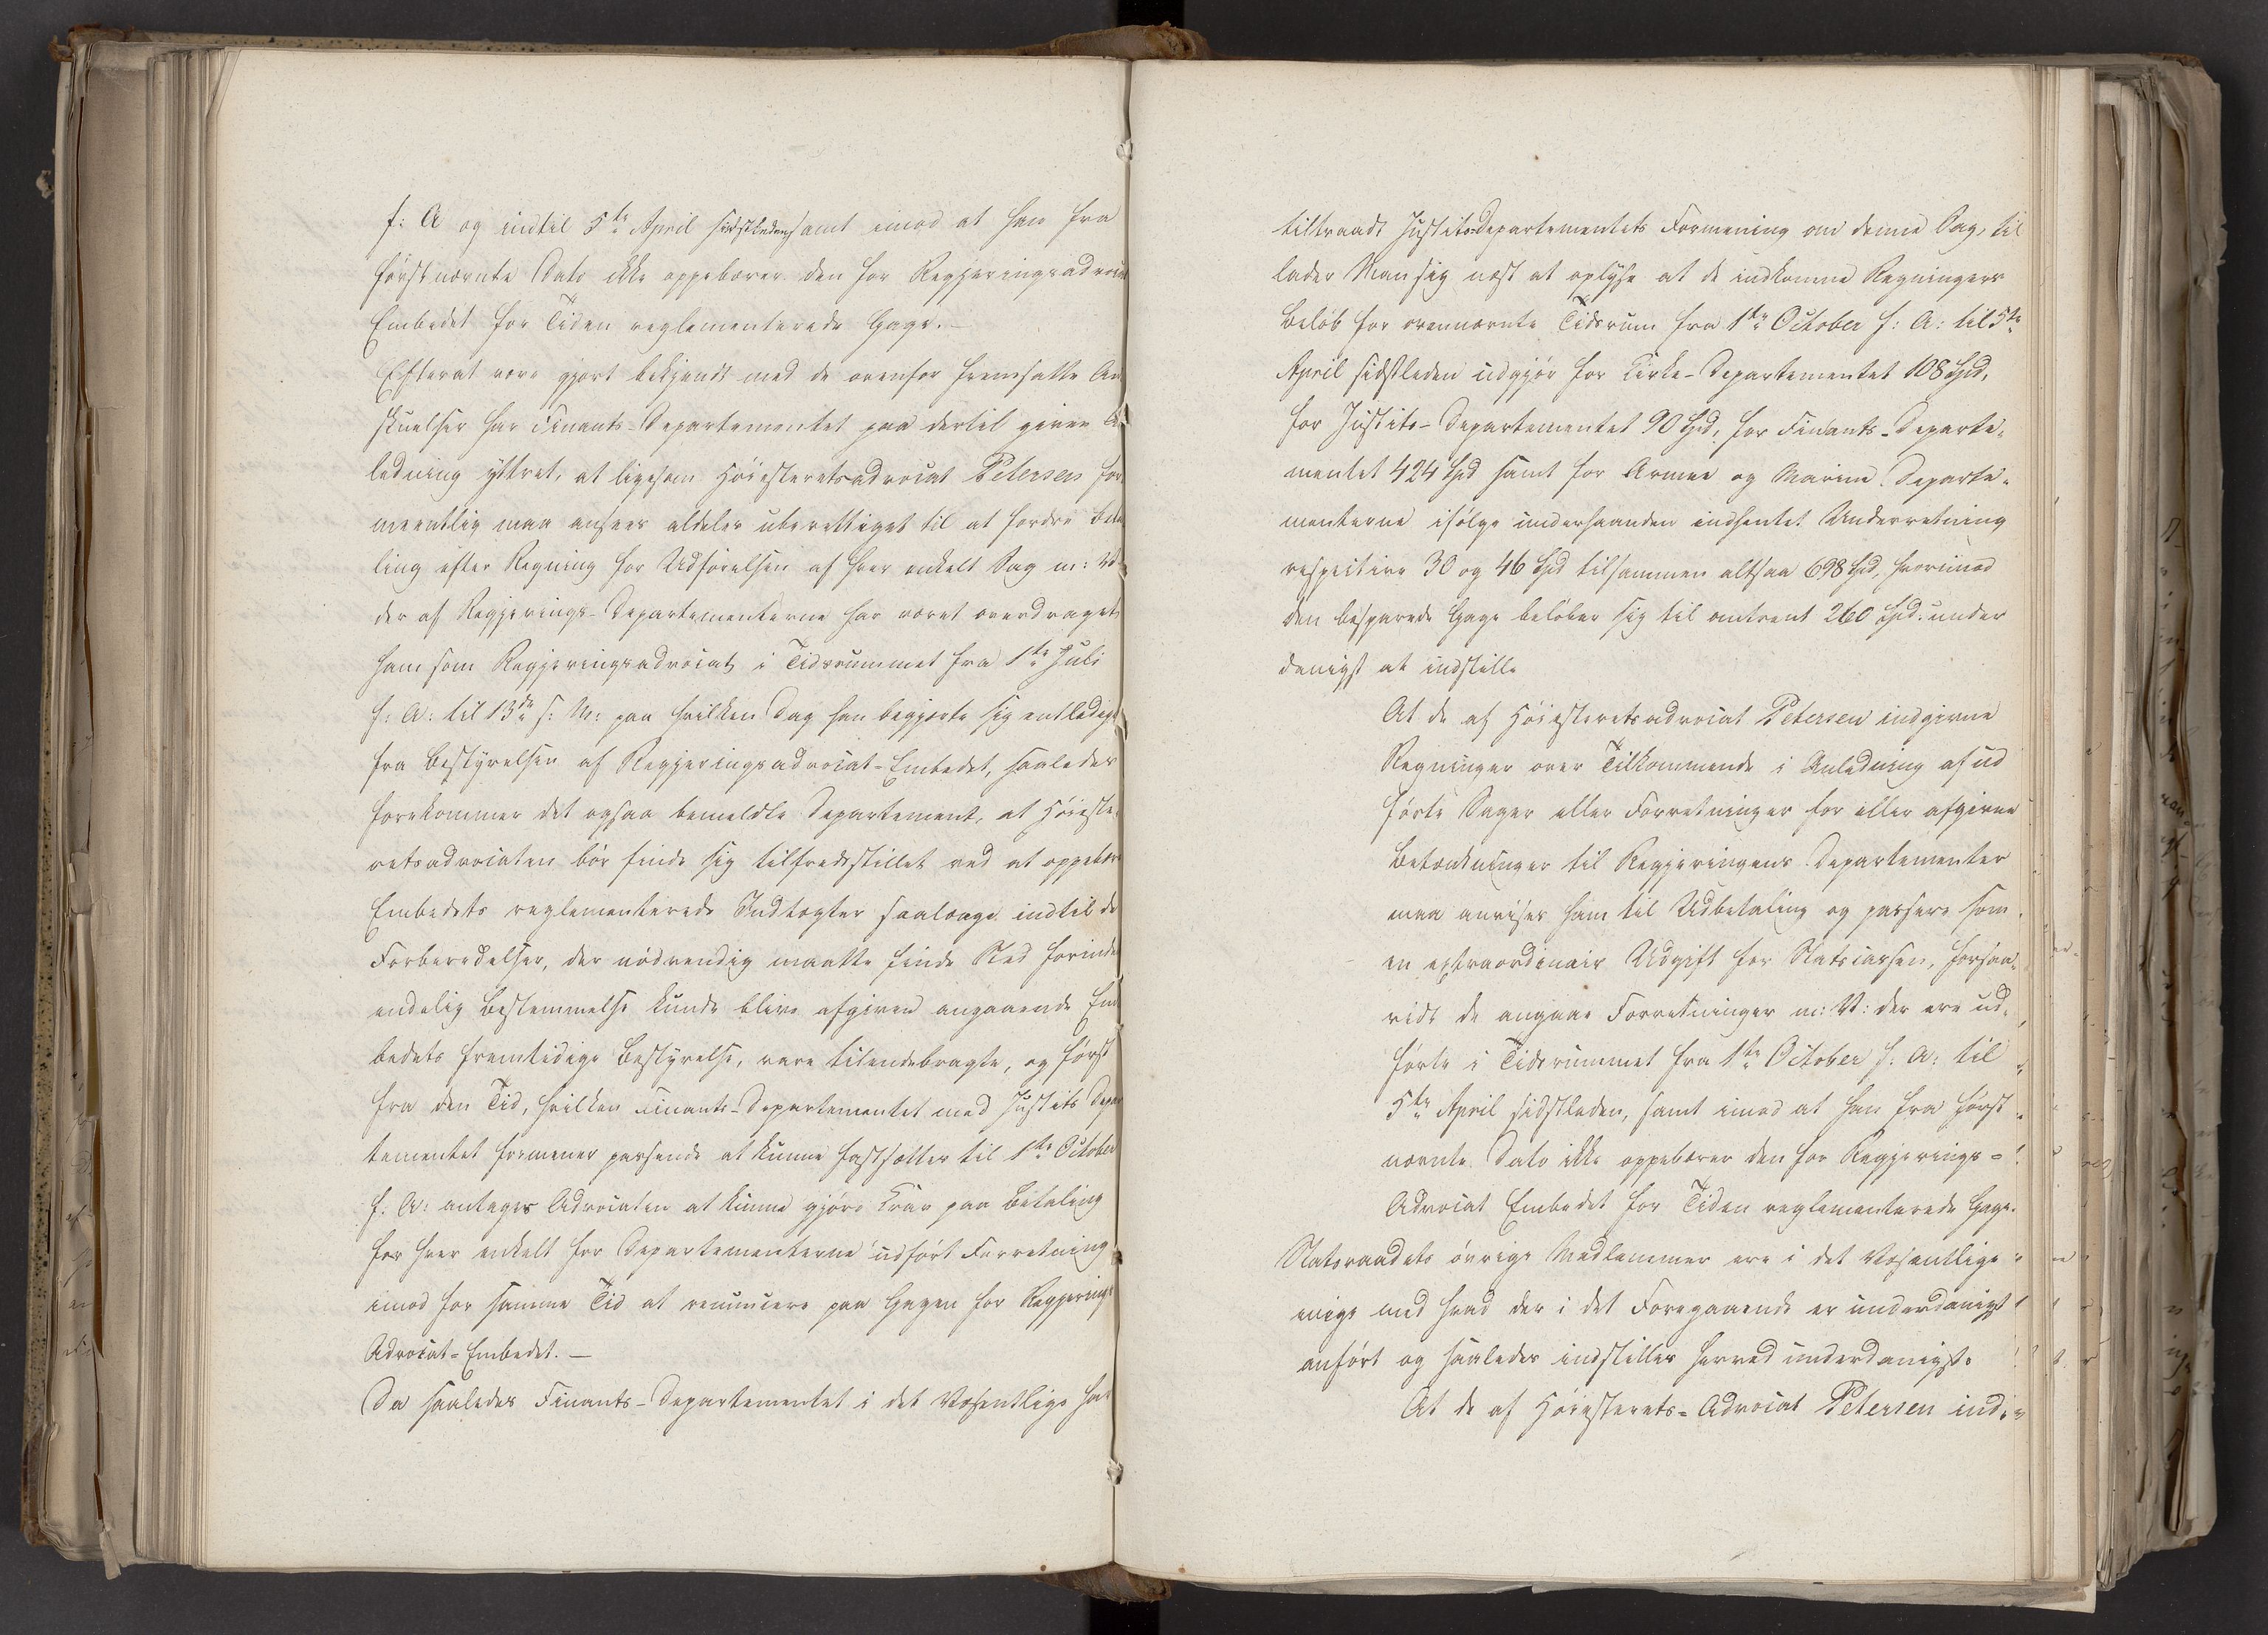 f: A og indtil 5te April sidstleden samt imod at han fra
förstnævnte Dato ikke oppebærer den for Regjeringsadvocat
Embedet for Tiden reglementerede Gage.—
Efterat være gjort bekjendt med de ovenfor fremsatte An
skuelser har Finants-Departementet paa dertil given An
ledning yttret, at ligesom Höiesteretsadvocat Petersen for
meentlig maa ansees aldeles uberettiget til at fordre Beta
ling efter Regning for Udförelsen af hver enkelt Sag m: V:
der af Regjerings-Departementerne har været overdraget
ham som Regjeringsadvocat i Tidsrummet fra 1ste Juli
f: A: til 13de s: M: paa hvilken Dag han begjærte sig entlediget
fra Bestyrelsen af Regjeringsadvocat-Embedet, saaledes
forekommer det ogsaa bemeldte Departement, at Höieste,
retsadvocaten bör finde sig tilfredsstillet ved at oppebære
Embedets reglementerede Indtægter saalænge indtil de
Forberedelser, der nödvendig maatte finde Sted forinden
endelig Bestemmelse kunde blive afgiven angaaende Em
bedets fremtidige Bestyrelse, vare tilendebragte, og först
fra den Tid, hvilken Finants-Departementet med Justits Depar
tementet formener passende at kunne fastsættes til 1ste October
f. A: antages Advocaten at kunne gjöre Krav paa Betaling
for hver enkelt for Departementerne udfört Forretning
imod for samme Tid at renuncere paa Gagen for Regjerings
Advocat-Embedet.—
Da saaledes Finants-Departementet i det Væsentlige har
tiltraadt Justits-Departementets Formening om denne Sag, til
lader Man sig næst at oplyse at de indkomne Regningers
Belöb for ovennævnte Tidsrum fra 1ste October f: A: til 5te
April sidstleden udgjör for Kirke-Departementet 108 Spd,
for Justits-Departementet 90 Spd, for Finants-Departe-
mentet 424 Spd samt for Armee og Marine Departe-
menterne ifölge underhaanden indhentet Underretning
respective 30 og 46 Spd tilsammen altsaa 698 Spd, hvorimod
den besparede Gage belöber sig til omtrent 260 Spd. under
danigst at indstille
At de af Höiesteretsadvocat Petersen indgivne
Regninger over Tilkommende i Anledning af ud
förte Sager eller Forretninger for eller afgivne
Betænkninger til Regjeringens Departementer
maa anvises ham til Udbetaling og passere som
en extraordinair Udgift for Statscassen, forsaa-
vidt de angaae Forretninger m: V: der ere ud-
förte i Tidsrummet fra 1ste October f. A: til
5te April sidstleden, samt imod at han fra först
nævnte Dato ikke oppebærer den for Regjerings-
Advocat Embedet for Tiden reglementerede Gage.
Statsraadets övrige Medlemmer ere i det Væsentlige
enige med hvad der i det Foregaaende er underdanigst
anfört og saaledes indstilles herved underdanigst:
At de af Höiesterets-Advocat Petersen ind-